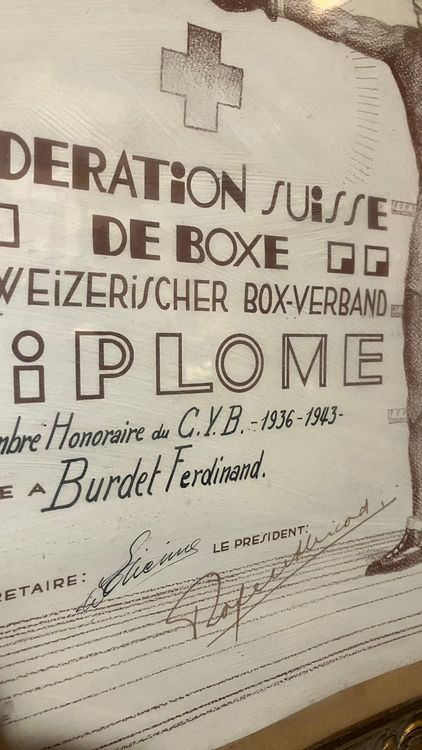 DERATION SUISSE
DE BOXE
WEIZERISCHER BOX-VERBAND
IPLOME
mbre Honoraire du C.Y.B. -1936-1943-
E A Burdet Ferdinand.
RETAIRE: LE PRESIDENT: